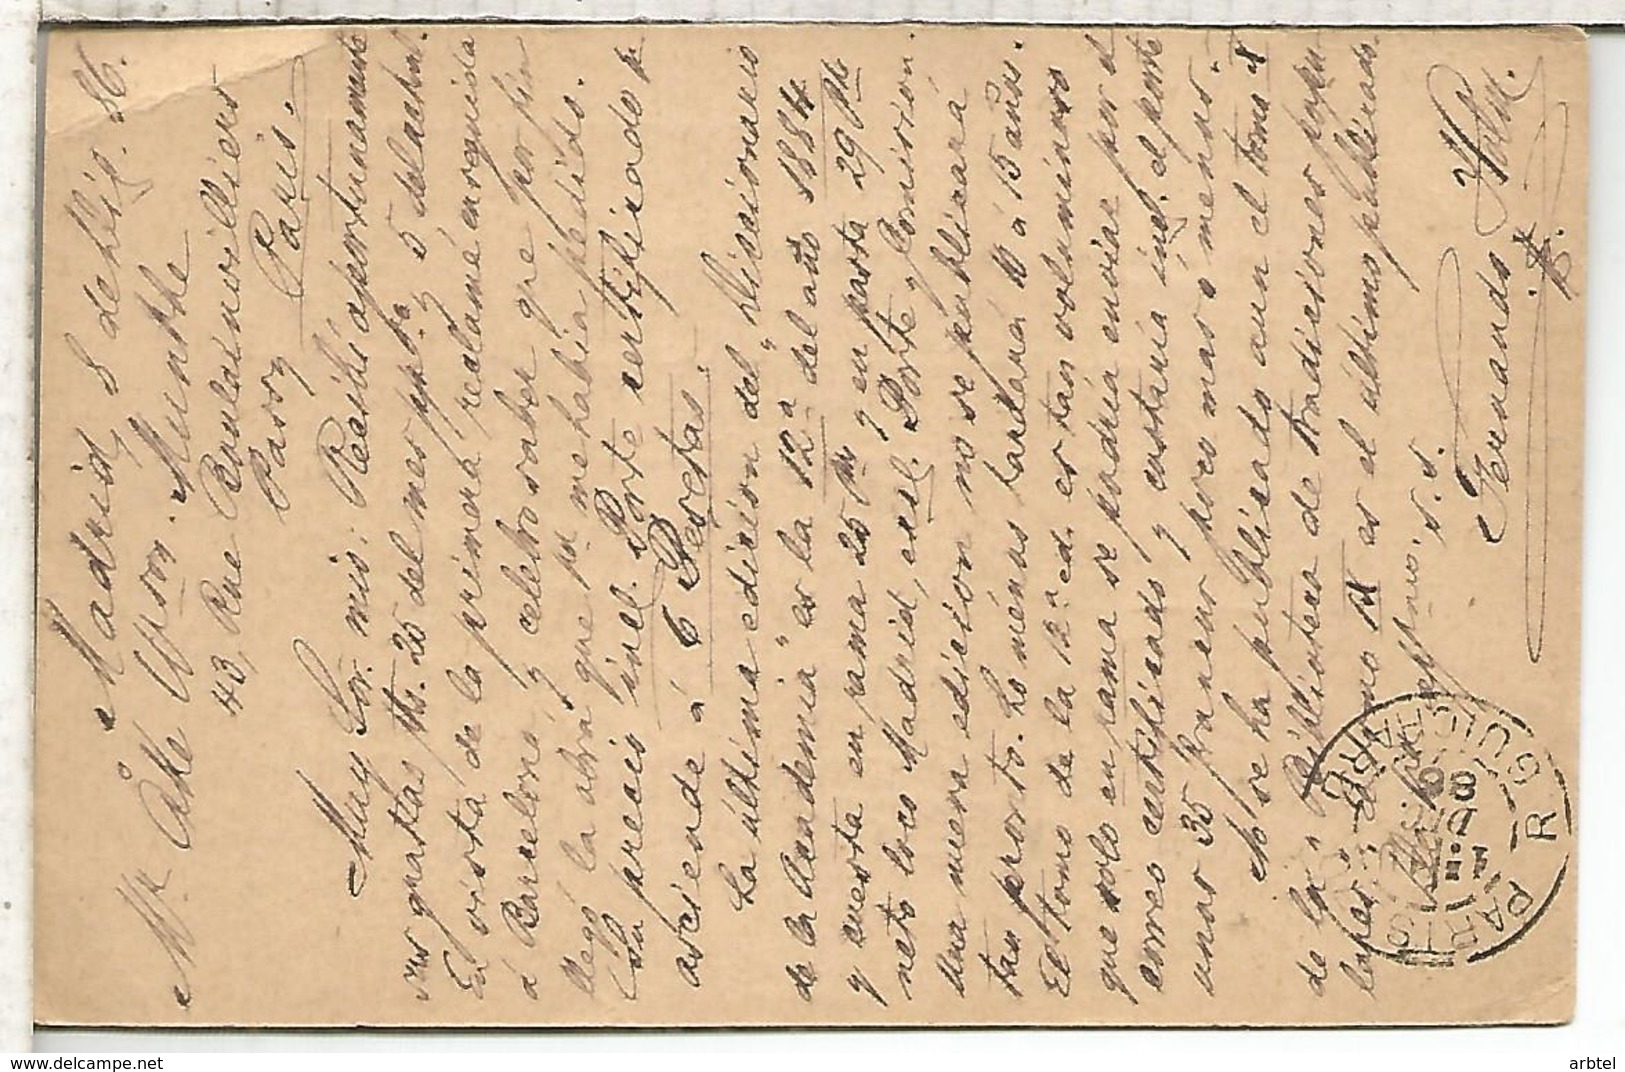 Madrid, 8 de . 86.
Mr Åke W:son Munthe
43, Rue Boulainvilliers
Passy
Paris.
Muy Sr. mio: Recibí oportunamente
sus gratas 25 del mes ppdo. y 5 del actual.
En vista de la primera reclamé enseguida
á Barcelona, y celebro saber que por fin
llegó la obra que me había pedido.
Su precio incl. Porte certificado
asciende á 6 Pesetas.
La última edicion del "Diccionario
de la Academia" es la 12a del año 1884
y cuesta en rama 25 Pts y en pasta 29 Pts
neto loco Madrid, excl. Porte y Comision.
Una nueva edicion no se publicará
tan pronto. Lo ménos tardará 10 á 15 años.
El tomo de la 12a ed. es tan voluminoso
que solo en rama se podría enviar por el
correo certificado y costaría incl. el porte
unos 35 francos poco mas o menos.
No se ha publicado aun el tomo X
de la "Biblioteca de tradiciones populares", el último publicado.
s. s.
Fernando
PARIS
1E
DEC
86
R GUICHARD
arbtel